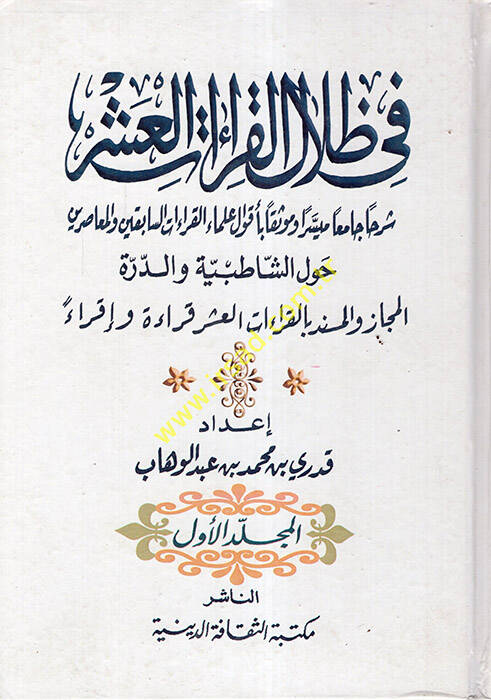 في ظلال القراءات العشر
شرحًا جامعًا ميسّرًا وموثقًا بأقوال علماء القراءات السابقين والمعاصرين
حول الشاطبية والدرة
المجاز والمسند بالقراءات العشر قراءة وإقراءً
إعداد
قدري بن محمد بن عبد الوهاب
المجلد الأول
الناشر
مكتبة الثقافة الدينية